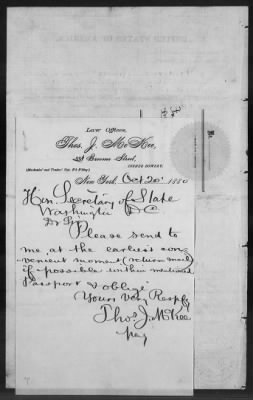 Law Offices,
Thos. J. McKee,
338 Broome Street,
CORNER BOWERY.
New York, Oct 20' 1880
Hon. Secretary of State
Washington D C
Dr Sir
Please send to
me at the earliest con-
venient moment (return mail)
if possible within mentioned
Passport & oblige
Yours Very Respfy
Thos J. McKee